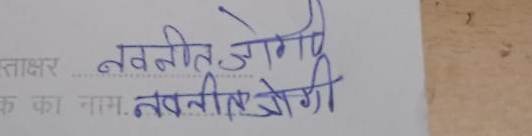 ताक्षर नवनीत जोगी
क का नाम. नवनीत जोगी